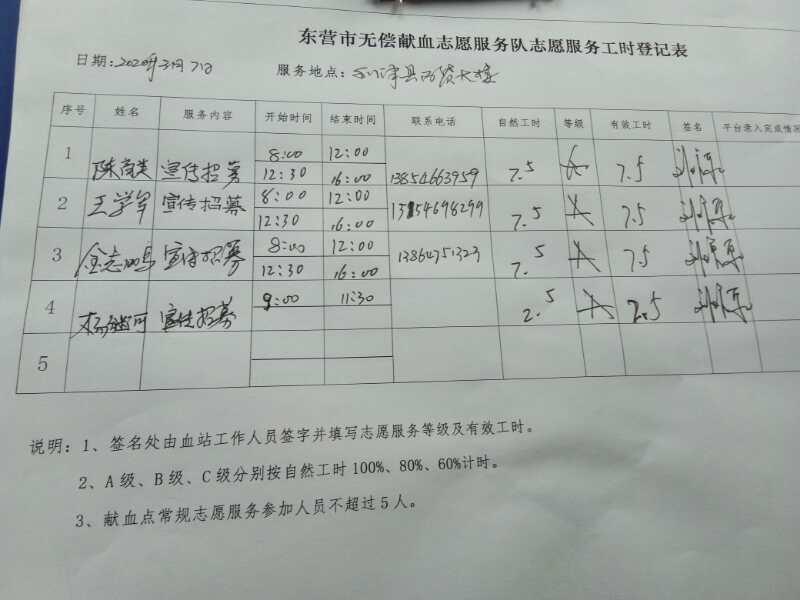 东营市无偿献血志愿服务队志愿服务工时登记表
日期:2020年3月7日 服务地点:利津县百货大楼
序号 姓名 服务内容 开始时间 结束时间 联系电话 自然工时 等级 有效工时 签名 平台录入完成情况
1 宣传招募 8:00 12:00 13854663959 7.5 A 7.5
12:30 16:00
2 王学军 宣传招募 8:00 12:00 15154698299 7.5 A 7.5
12:30 16:00
3 宣传招募 8:00 12:00 13864751323 7.5 A 7.5
12:30 16:00
4 宣传招募 9:00 11:30 2.5 A 2.5
5
说明:1、签名处由血站工作人员签字并填写志愿服务等级及有效工时。
2、A级、B级、C级分别按自然工时100%、80%、60%计时。
3、献血点常规志愿服务参加人员不超过5人。